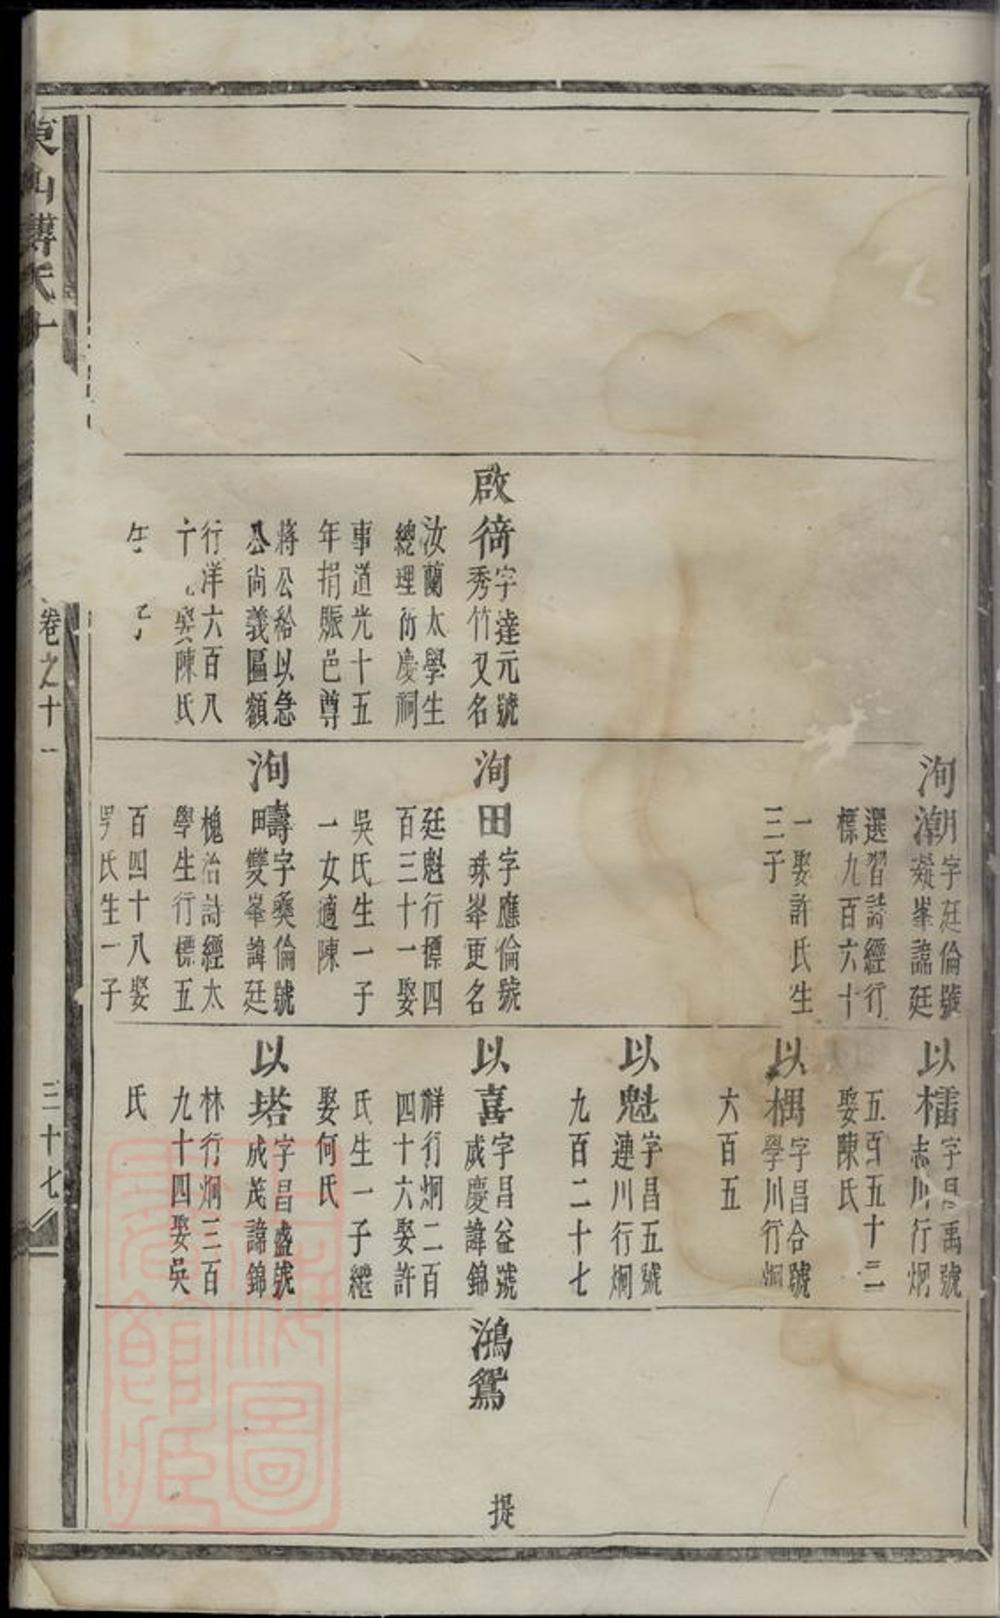 啟㣲
字達元號
秀竹又名
汝蘭太學生
總理衍慶祠
事道光十五
年捐賑邑尊
將公給以急
公尚義匾額
行洋六百八
十 娶陳氏
生 子
洵潮
字廷倫號
凝峯諱廷
選習詩經行
標九百六十
一娶許氏生
三子
洵田
字應倫號
珠峯更名
廷魁行標四
百三十一娶
吳氏生一子
一女適陳
洵疇
字奠倫號
雙峯諱廷
槐治詩經太
學生行標五
百四十八娶
氏生一子
以檑
字昌禹號
志川行炯
五百五十二
娶陳氏
以楫
字昌合號
學川行炯
六百五
以魁
字昌五號
連川行炯
九百二十七
以喜
字昌益號
咸慶諱錦
祥行炯二百
四十六娶許
氏生一子繼
娶何氏
以塔
字昌盛號
成茂諱錦
林行炯三百
九十四娶吳
氏
鴻鴛
提
東山傅氏十
卷之十一
三十七